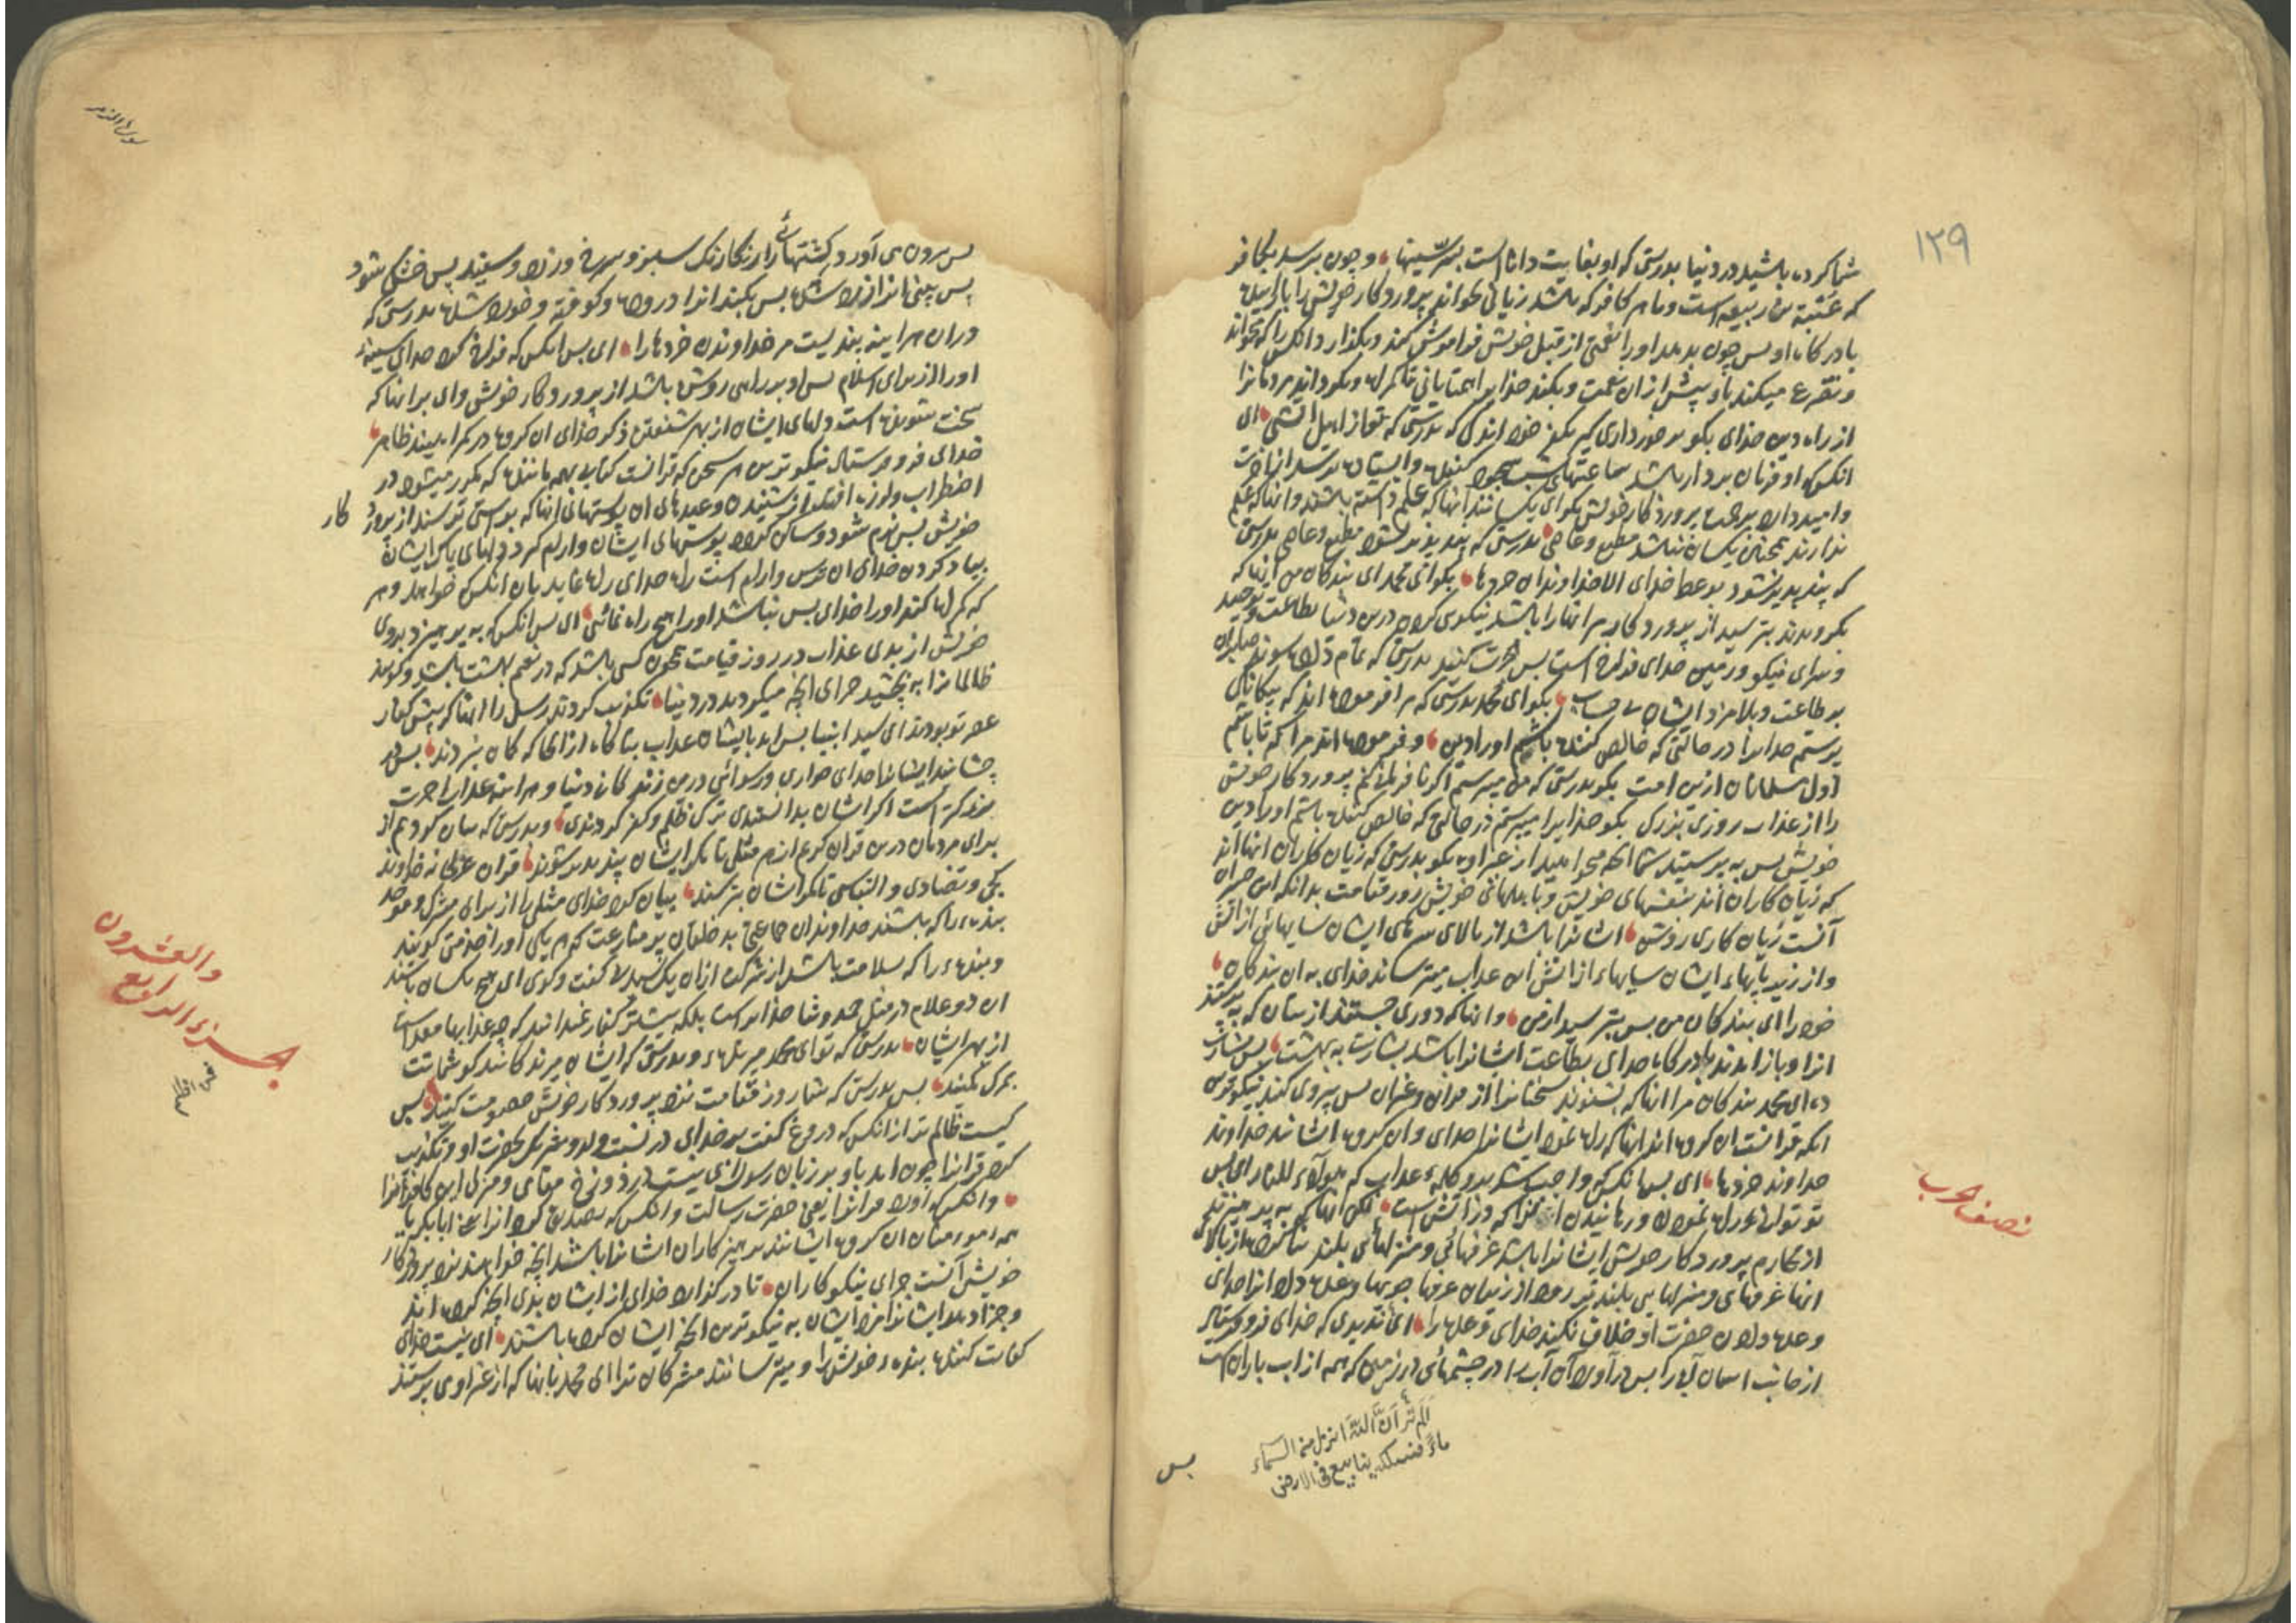 ١٢٩
شما کرده باشید در دنیا بدرستی که او بغایت داناست بسر سینها وچون برسد بکافر
که عتبة بن ربیعه است وما هر کافر که باشد زیانی بخواند پروردگار خویش را
بادرکاه او پس چون بدهد اورا نعمتی از قبل خویش فراموش کند وبکذارد انکس را که بخواند
وتضرع میکند باو پیش از آن نعمت وبکند خدایرا همتایانی تا کمراه وبکرداند مردمانرا
از راه دین خدای بکو برخورداری کیر بکفر خود اندکی که بدرستی که تو از اهل آتشی ای
انکس که او فرمان بردار باشد ساعتهای شب سجود کننده وایستاده بترسد از آخرت
وامید دارد برحمت پروردکار خویش بکو ای یکسانند انها که علم دانسته باشند وانها که علم
ندارند همچنین یکسان نباشد مطیع وعاصی بدرستی که پند پذیر نشود مطیع وعاصی بدرستی
که پند پذیر نشود بوعظ خدای الا خداوندان خردها بکو ای محمد ای بندکان من آنها که
بکرویدند بترسید از پروردکار مر انهارا باشد نیکوی کرده درین دنیا بطاعت وتوحید
وسرای نیکو وزمین خدای فراخ است پس هجرت کنید بدرستی که تمام داده شوند صابران
بر طاعت وبلا مزد ایشان بی حساب بکو ای محمد بدرستی که مرا فرموده اند که بیکانکی
پرستم خدایرا در حالتی که خالص کننده باشم اورا دین وفرموده اند مرا که تا باشم
اول مسلمانان ازین امت بکو بدرستی که من میترسم اکر نافرمانی کنم پروردکار خویش
را از عذاب روزی بزرک بکو خدایرا میپرستم در حالتی که خالص کننده باشم اورا دین
خویش پس بپرستید شما آنچه میخواهید از غیر او بکو بدرستی که زیان کاران انها اند
که زیان کاران اند نفسهای خویش وباهلهای خویش روز قیامت بدانکه این خسران
آنست زیان کاری روشن ایشانرا باشد از بالای سرهای ایشان سایهائی از آتش
واز زیر پایهاء ایشان سایهاء از آتش این عذاب میترساند خدای به ان بندکان
خودرا ای بندکان من پس بترسید از من وانها که دوری جستند از بتان که پرستند
انرا وباز آمدند بدرکاه خدای بطاعت ایشانرا باشد بشارت به بهشت پس بشارت
ده ای محمد بندکان مرا انها که بشنوند سخنانرا از قران وغیران پس پیروی کنند نیکوترین
انکه قرانست ان کروه اند انها که راه نمود ایشانرا خدای وان کروه ایشانند خداوند
خداوند خردها ای پس هرانکس که واجب شد برو کلمه عذاب که هولاء للنار ای پس
تو توانی راه نمودن ورهانیدن انرا که در آتش است لکن انها که بپرهیزند
از محارم پروردکار خویش ایشانرا باشد غرفهائی ومنزلهائی بلند بنا کرده از بالای
انها غرفهای ومنزلها بلندتر رود از زیران غرفها جویها وعده داد انرا خدای
وعده دادن حضرت او خلاف نکند خدای وعده را ای ندیدی که خدای فرو فرستاد
از جانب اسمان آب را پس درآورد آن آب را در چشمهائی در زمین که همه از اب باران است
الم تر ان الله انزل من السماء
ماء فسلکه ینابیع فی الارض
پس
نصف الحزب
سورة الزمر
پس بیرون می آورد کشتهائی را رنکارنک سبز وسرخ وزرد وسفید پس خشک شود
پس بینی انرا زرد شده پس بکند انرا درهم وکوفته وخورد شده بدرستی که
دران هراینه پندیست مر خداوندان خردها را ای پس انکس که فراخ کرد خدای سینه
اورا از برای اسلام پس او بر راهی روشن باشد از پروردکار خویش وای بر انها که
سخت شونده است دلهای ایشان از بهر شنفتن ذکر خدای ان کروه در کمراهیند ظاهر
خدای فرو فرستاد نیکوترین سخن که قرانست کتابی بهم ماننده که مکرر میشود در
اضطراب ولرزه افتد از شنیدن وعدهای ان پوستهای انها که براستی ترسند از پرورد کار
خویش پس نرم شود وساکن کردد پوستهای ایشان وآرام کرد دلهای پاک ایشان
بیاد کردن خدای ان ترس وارام است راه خدای راه نماید بان انکس که خواهد وهر
که کمراه کند اورا خدای پس نباشد اورا هیچ راه نمائی ای پس انکس که بپرهیزد بروی
خویش از بدی عذاب در روز قیامت همچون کسی باشد که در نعیم بهشت باشد وکویند
ظالمانرا بچشید جزای انچه میکردید در دنیا تکذیب کردند رسل را انها که پیش کفار
عصر تو بودند ای سید انبیا پس امد بایشان عذاب بناکاه از انجا که کمان نبردند پس
چشانید ایشانرا خدای خواری ورسوائی درین زندکانی دنیا وهراینه عذاب آخرت
بزرکتر است اکر ایشان بدانستندی ترک ظلم وکفر کردندی وبدرستی که بیان کردیم از
برای مردمان درین قران کریم از هر مثلی تا مکر ایشان پند پذیر شوند قران عربی نه خداوند
کجی وتضادی والتباس تا مکر ایشان بترسند بیان کرد خدای مثلی را از برای مشرک وموحد
بنده‌ء را که باشند خداوندان جماعتی بد خلقان پر منازعت که هر یکی اورا خدمتی کویند
وبنده‌ء را که سلامت باشد از شرکت از آن یک سید لا کفت وکوی ای هیچ یکسان باشند
ان دو غلام در مثل حمد وثنا خدایراست بلکه بیشتر کفار نمیدانند که چه عذابها معداست
از بهر ایشان بدرستی که تو ای محمد میرنده‌ء وبدرستی که ایشان میرندکانند کو شماتت
بمرک مکنید پس بدرستی که شما روز قیامت نزد پروردکار خویش خصومت کنید پس
کیست ظالم تر از انکس که دروغ کفت بر خدای در نسبت ولد وشریک بحضرت او وتکذیب
کرد قرانرا چون امد باو بر زبان رسول ای نیست در دوزخ مقامی ومنزلی این کافرانرا
وانکس که آورد قرانرا یعنی حضرت رسالت وانکس که تصدیق کرد انرا یعنی ابابکر با
همه مومنان ان کروه ایشانند پرهیزکاران ایشانرا باشد انچه خواهند نزد پروردکار
خویش آنست جزای نیکوکاران تا درکذراند خدای از ایشان بدی انچه کرده اند
وجزا دهد ایشانرا مزد ایشان به نیکوترین انچه ایشان کرده باشند ای نیست خدای
کفایت کننده بنده‌ء خویش را ومیترسانند مشرکان ترا ای محمد بانها که از غیر او می پرستند
والعشرون
الجزء الرابع
فمن اظلم